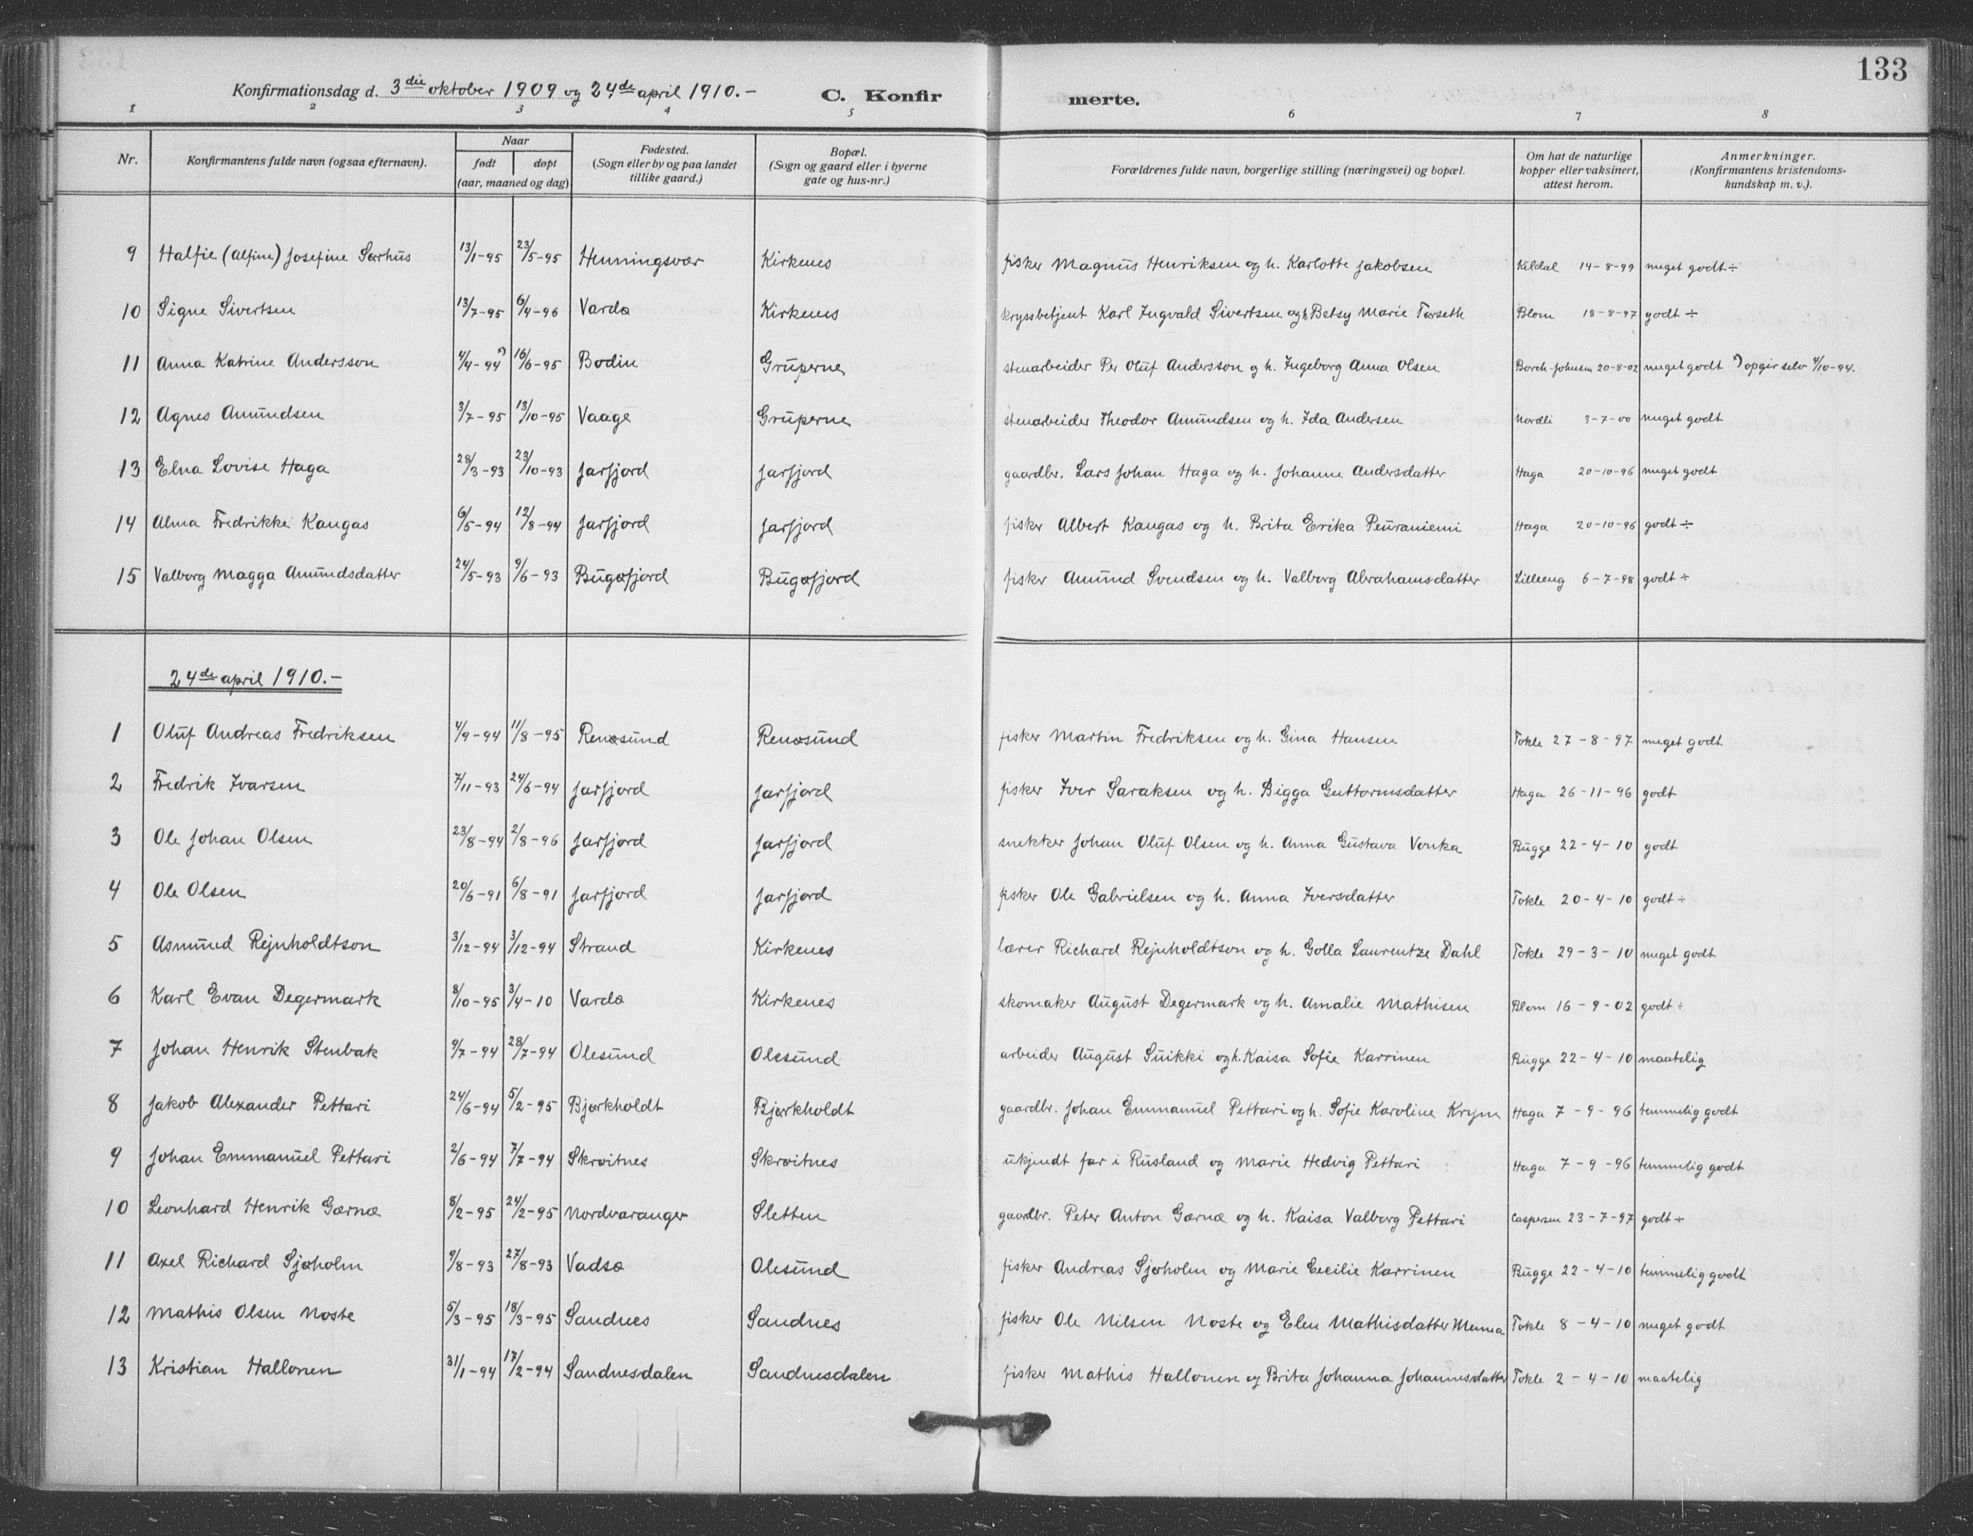 133
Konfirmationsdag d. 3die oktober 1909 og 24de april 1910.- C. Konfir merte.
1 2 3 4 5 6 7 8
Nr. Konfirmantens fulde navn (ogsaa efternavn). Naar født døpt (aar, maaned og dag) Fødested. (Sogn eller by og paa landet tillike gaard.) Bopæl. (Sogn og gaard eller i byerne gate og hus-nr.) Forældrenes fulde navn, borgerlige stilling (næringsvei) og bopæl. Om hat de naturlige kopper eller vaksinert, attest herom. Anmerkninger. (Konfirmantens kristendoms-kundskap m. v.).
9 Halfie (Alfine) Josefine Sørhus 13/1-95 23/5-95 Henningsvær Kirkenes fisker Magnus Henriksen og h. Karlotte Jakobsen Kildal 14-8-99 meget godt ÷
10 Signe Sivertsen 13/7-95 6/4-96 Vardø Kirkenes kryssbetjent Karl Ingvald Sivertsen og h. Betsy Marie Tørseth Blom 18-8-97 godt ÷
11 Anna Katrine Andersson 4/4-94 *) 16/6-95 Bodin Gruperne stenarbeider Per Oluf Andersson og h. Ingeborg Anna Olsen Borch-Johnsen 20-8-02 meget godt *) opgir selv 4/10-94.
12 Agnes Amundsen 3/7-95 13/10-95 Vaage Gruperne stenarbeider Theodor Amundsen og h. Ida Andersen Nordli 3-7-00 meget godt
13 Elna Lovise Haga 28/3-93 23/10-93 Jarfjord Jarfjord gaardbr. Lars Johan Haga og h. Johanne Andersdatter Haga 20-10-96 meget godt
14 Alma Fredrikke Kangas 6/5-94 12/8-94 Jarfjord Jarfjord fisker Albert Kangas og h. Brita Erika Peuraniemi Haga 20-10-96 godt ÷
15 Valborg Magga Amundsdatter 24/5-93 9/6-93 Bugøfjord Bugøfjord fisker Amund Svendsen og h. Valborg Abrahamsdatter Lilleeng 6-7-98 godt ÷
24de april 1910.-
1 Oluf Andreas Fredriksen 4/9-94 11/8-95 Renøsund Renøsund fisker Martin Fredriksen og h. Gina Hansen Tokle 27-8-97 meget godt
2 Fredrik Ivarsen 7/11-93 24/6-94 Jarfjord Jarfjord fisker Iver Saraksen og h. Bigga Guttormsdatter Haga 26-11-96 godt
3 Ole Johan Olsen 23/8-94 2/8-96 Jarfjord Jarfjord snekker Johan Oluf Olsen og h. Anna Gustava Vonka Bugge 22-4-10 godt
4 Ole Olsen 20/6-91 6/8-91 Jarfjord Jarfjord fisker Ole Gabrielsen og h. Anna Iversdatter Tokle 20-4-10 godt ÷
5 Asmund Rejnholdtson 3/12-94 3/12-94 Strand Kirkenes lærer Richard Rejnholdtson og h. Golla Laurentze Dahl Tokle 29-3-10 meget godt
6 Karl Evan Degermark 8/10-95 3/4-10 Vardø Kirkenes skomaker August Degermark og h. Amalie Mathisen Blom 16-9-02 godt ÷
7 Johan Henrik Stenbak 9/7-94 28/7-94 Olesund Olesund arbeider August Suikki og h. Kaisa Sofie Karrinen Bugge 22-4-10 maatelig
8 Jakob Alexander Pettari 24/6-94 5/2-95 Bjørkholdt Bjørkholdt gaardbr. Johan Emmanuel Pettari og h. Sofie Karoline Krym Haga 7-9-96 temmelig godt
9 Johan Emmanuel Pettari 2/6-94 7/7-94 Skroitnes Skroitnes ukjendt far i Rusland og Marie Hedvig Pettari Haga 7-9-96 temmelig godt
10 Leonhard Henrik Gærnæ 8/2-95 24/2-95 Nordvaranger Sletten gaardbr. Peter Anton Gærnæ og h. Kaisa Valborg Pettari Caspersen 23-7-97 godt ÷
11 Axel Richard Sjøholm 9/8-93 27/8-93 Vadsø Olesund fisker Andreas Sjøholm og Marie Cecilie Karrinen Bugge 22-4-10 temmelig godt
12 Mathis Olsen Noste 5/3-95 18/3-95 Sandnes Sandnes fisker Ole Nilsen Noste og Elen Mathisdatter Menna Tokle 8-4-10 meget godt
13 Kristian Hallonen 31/1-94 17/2-94 Sandnesdalen Sandnesdalen fisker Mathis Hallonen og Brita Johanna Johannesdatter Tokle 2-4-10 maatelig